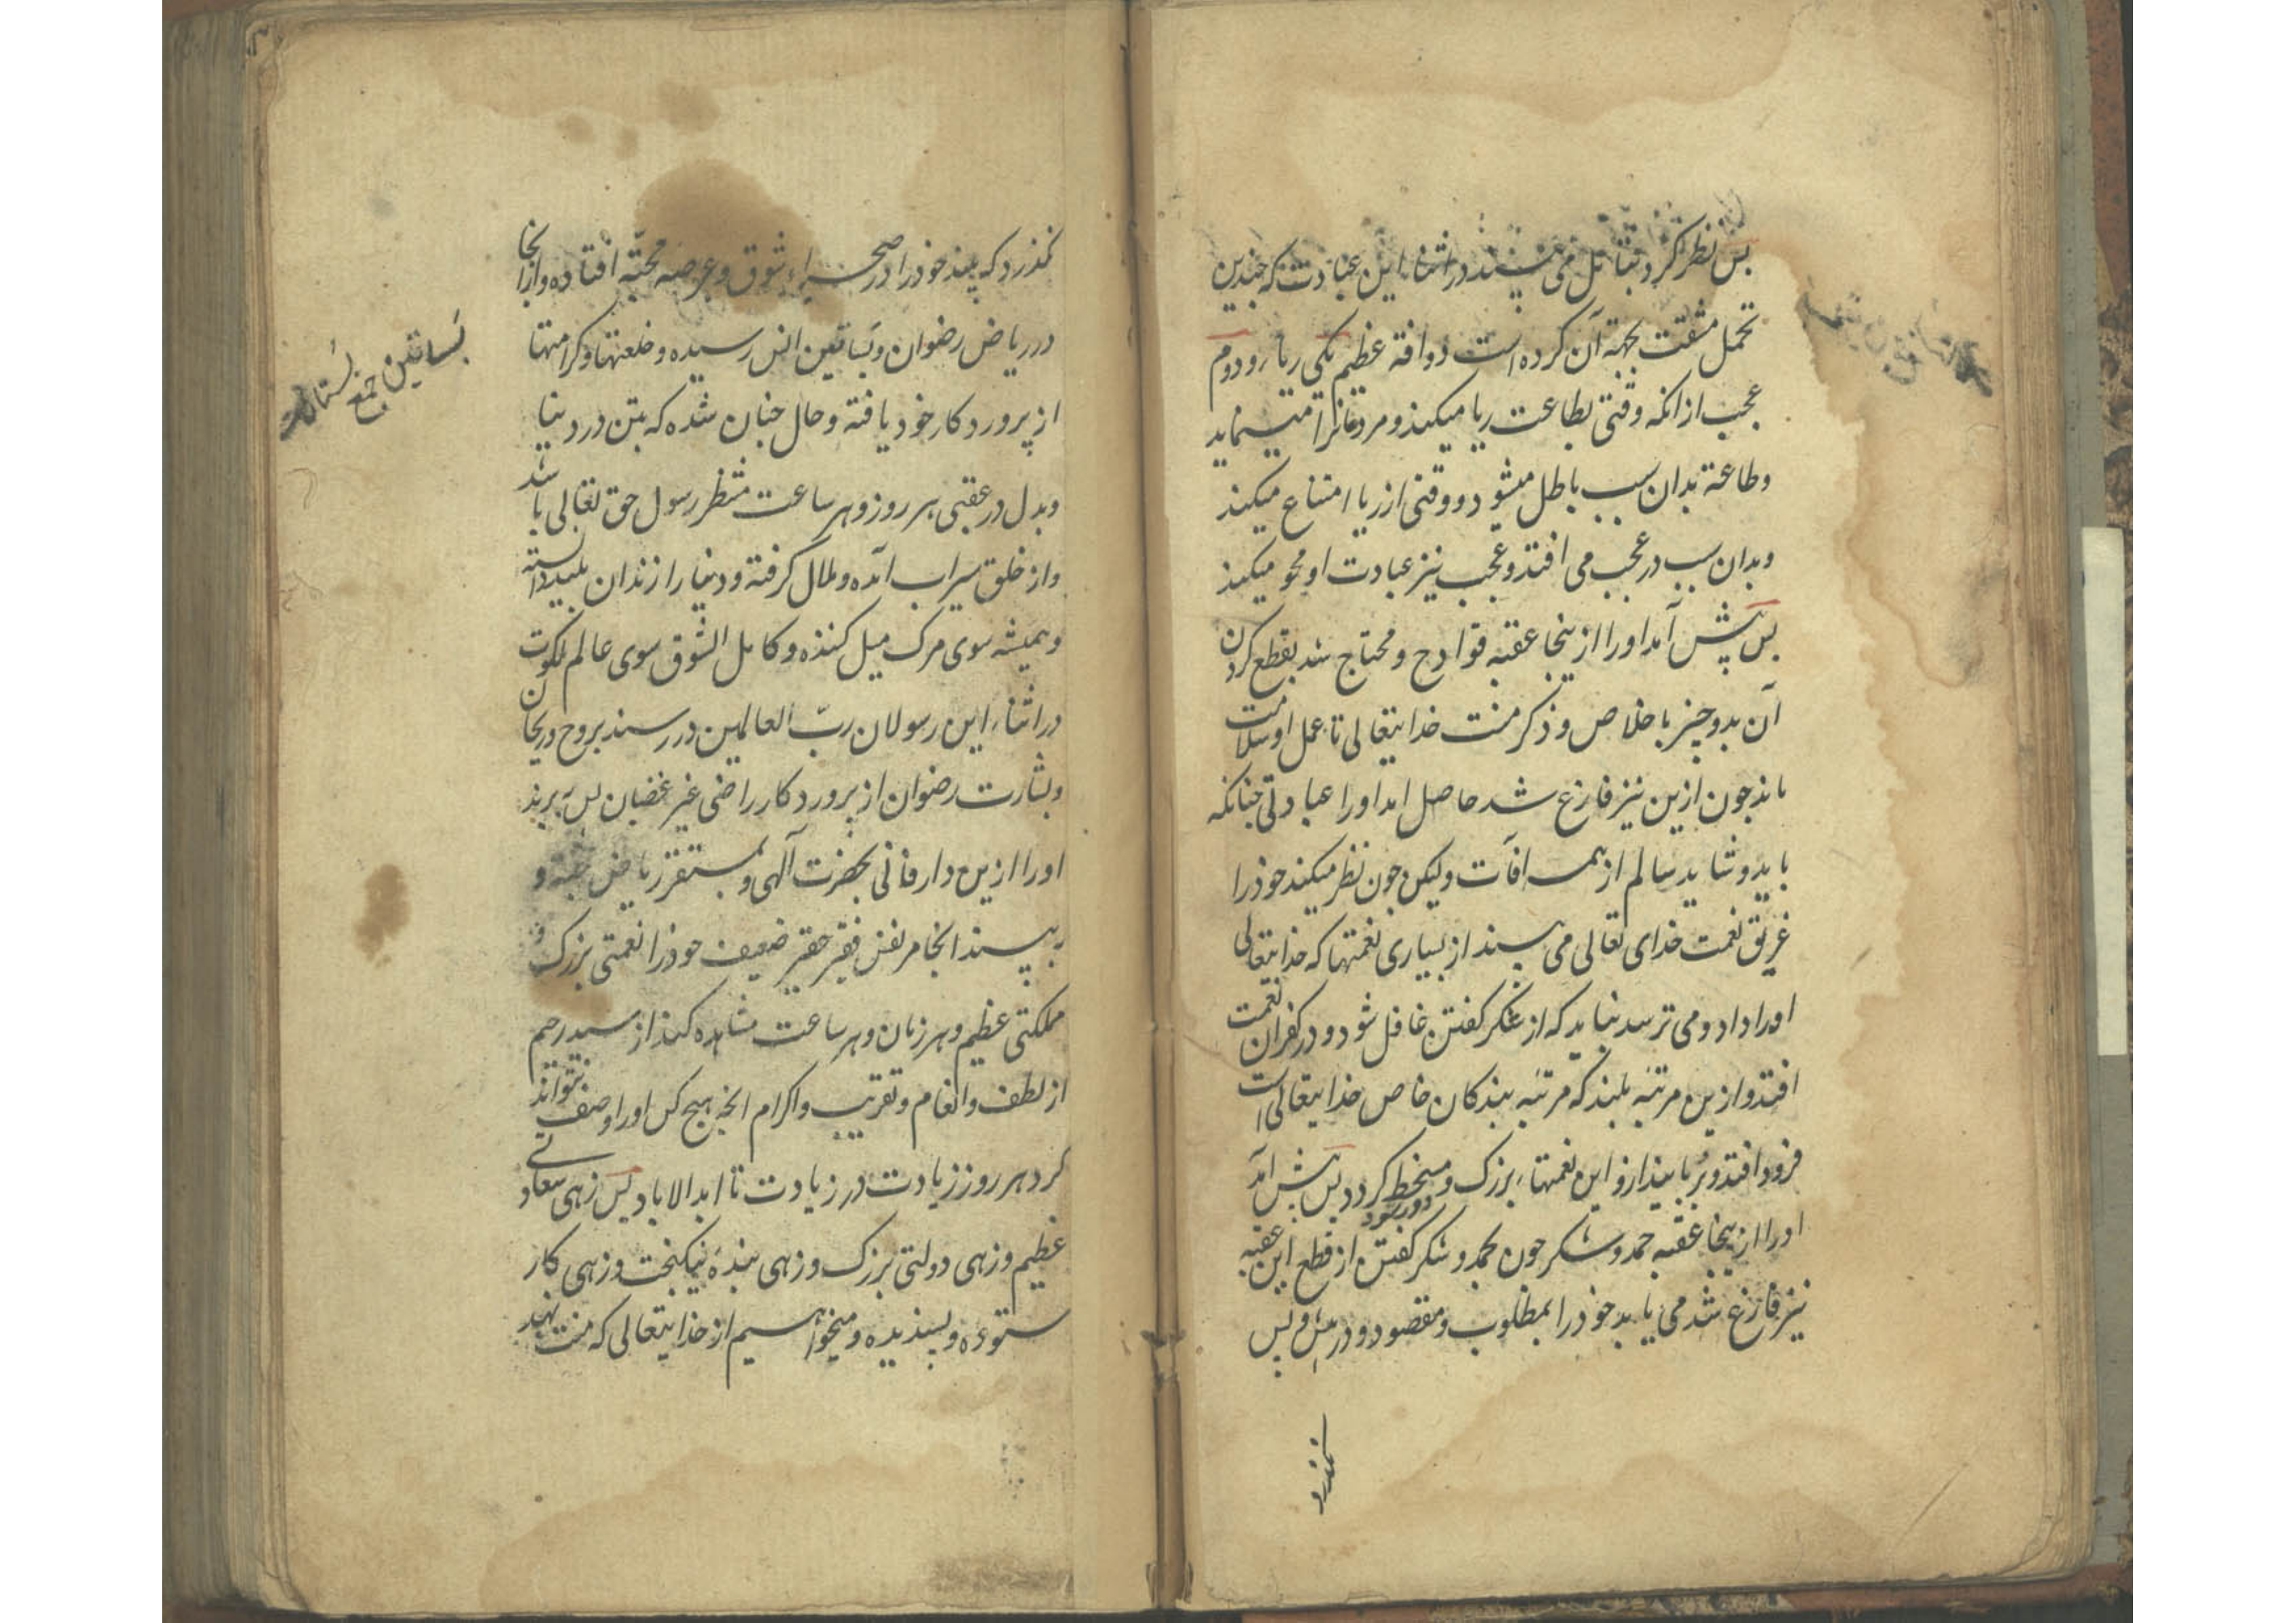 بس نظر کرد بتامل می بیند در اثناء این عبادت که چندین
تحمل مشقت بجهة آن کرده است دو افة عظیم یکی ریا و دوم
عجب از انکه وقتی بطاعت ریا میکند و مردمانرا مینماید
وطاعة بدان سبب باطل میشود و وقتی از ریا امتناع میکند
وبدان سبب در عجب می افتد وعجب نیز عبادت او محو میکند
بس پیش آمد اورا از ینجا عقبه قوادح و محتاج شد بقطع کردن
آن بدو چیز باخلاص و ذکر منت خدایتعالی تا عمل او سلامت
ماند چون ازین نیز فارغ شد حاصل امد اورا عبادتی چنانکه
باید و شاید سالم از همه افات ولیکن چون نظر میکند خود را
غریق نعمت خدای تعالی می بیند از بسیاری نعمتها که خدایتعالی
اورا داد و می ترسد نباید که از شکر کفتن غافل شود و در کفران نعمت
افتد و ازین مرتبه بلند که مرتبه بندکان خاص خدایتعالی است
فرود افتد و برباید ازو این نعمتهاء بزرک و مسخط کردد بس پیش امد
دور شود
اورا از ینجا عقبه حمد وشکر چون بحمد و شکر کفتن از قطع این عقبه
نیز فارغ شد می یابد خود را بمطلوب و مقصود و در پیش و بس
نگذرد
نگذرد که بیند خود را در صحراء شوق و عرصه محبة افتاده و ازانجا
در ریاض رضوان و بساتین انس رسیده و خلعتها و کرامتها
بساتین جمع بستانست
از پرورد کار خود یافته و حال چنان شده که بتن در دنیا
وبدل در عقبی هر روز و هر ساعت منتظر رسول حق تعالی باشد
واز خلق سیراب آمده و ملال گرفته و دنیا را زندان پلید دانسته
وهمیشه سوی مرک میل کننده و کامل الشوق سوی عالم ملکوت
در اثناء این رسولان ربّ العالمین در رسند بروح و ریحان
وبشارت رضوان از پرورد کار راضی غیر غضبان پس ببرند
اورا ازین دار فانی بحضرت آلهی و بمستقر ریاض جنة و
ببیند انجا مر نفس فقیر حقیر ضعیف خود را نعمتی بزرک و
مملکتی عظیم و هر زمان و هر ساعت مشاهده کند از سید رحیم
از لطف و انعام و تقریب و اکرام انچه هیچ کس اورا وصف نتواند
کرد هر روز زیادت در زیادت تا ابد الاباد پس زهی سعادتی
عظیم و زهی دولتی بزرک و زهی بندهٔ نیکبخت و زهی کار
ستوده و بسندیده و میخواهیم از خدایتعالی که منت نهد